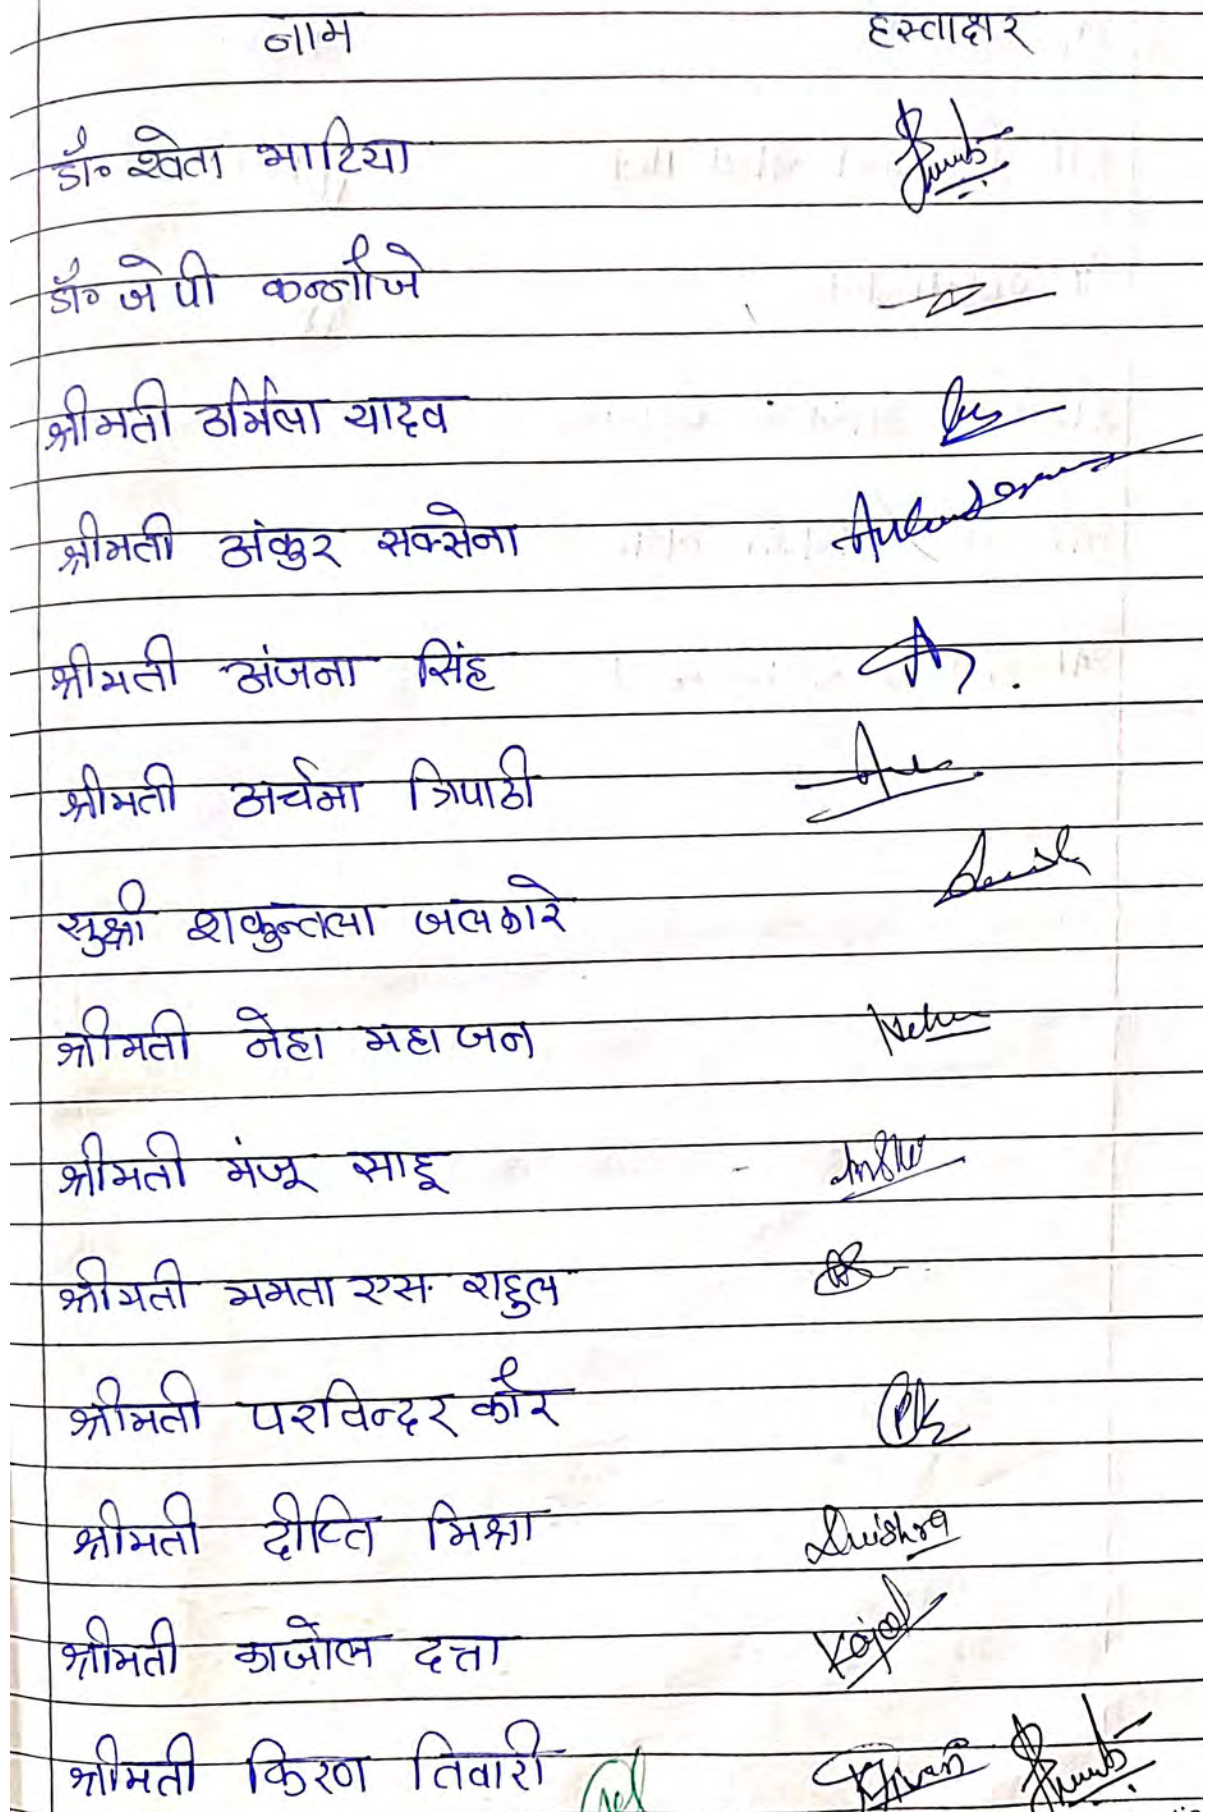 नाम हस्ताक्षर
डॉ० श्वेता भाटिया
डॉ० जे पी कन्नौजे
श्रीमती उर्मिला यादव
श्रीमती अंकुर सक्सेना
श्रीमती अंजना सिंह
श्रीमती अर्चना त्रिपाठी
सुश्री शकुन्तला जलकारे
श्रीमती नेहा महाजन Neha
श्रीमती मंजू साहू
श्रीमती ममता एस. राहुल
श्रीमती परविन्दर कौर PK
श्रीमती दीप्ति मिश्रा Dmishra
श्रीमती काजोल दत्ता Kajol
श्रीमती किरण तिवारी